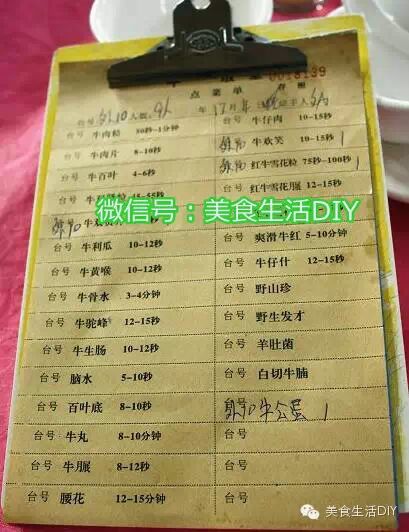 0018139
点菜单 存根
台号 人数: 年12月 日 主人
台号 牛肉粒 50秒-1分钟
台号 牛仔肉 10-15秒
台号 牛肉片 8-10秒
牛欢笑 10-15秒 1
台号 牛百叶 4-6秒
红牛雪花粒 75秒-100秒 1
台号 红牛雪花腒 12-15秒
微信号：美食生活DIY
台号 牛利瓜 10-12秒
台号 爽滑牛红 5-10分钟
台号 牛黄喉 10-12秒
台号 牛仔什 12-15秒
台号 牛骨水 3-4分钟
台号 野山珍
台号 牛驼峰 12-15秒
台号 野生发才
台号 牛生肠 10-12秒
台号 羊肚菌
台号 脑水 5-10秒
台号 白切牛腩
台号 百叶底 8-10秒
台号 1
台号 牛丸 8-10分钟
台号
台号 牛腒 8-12秒
台号
台号 腰花 12-15分钟
台号
美食生活DIY